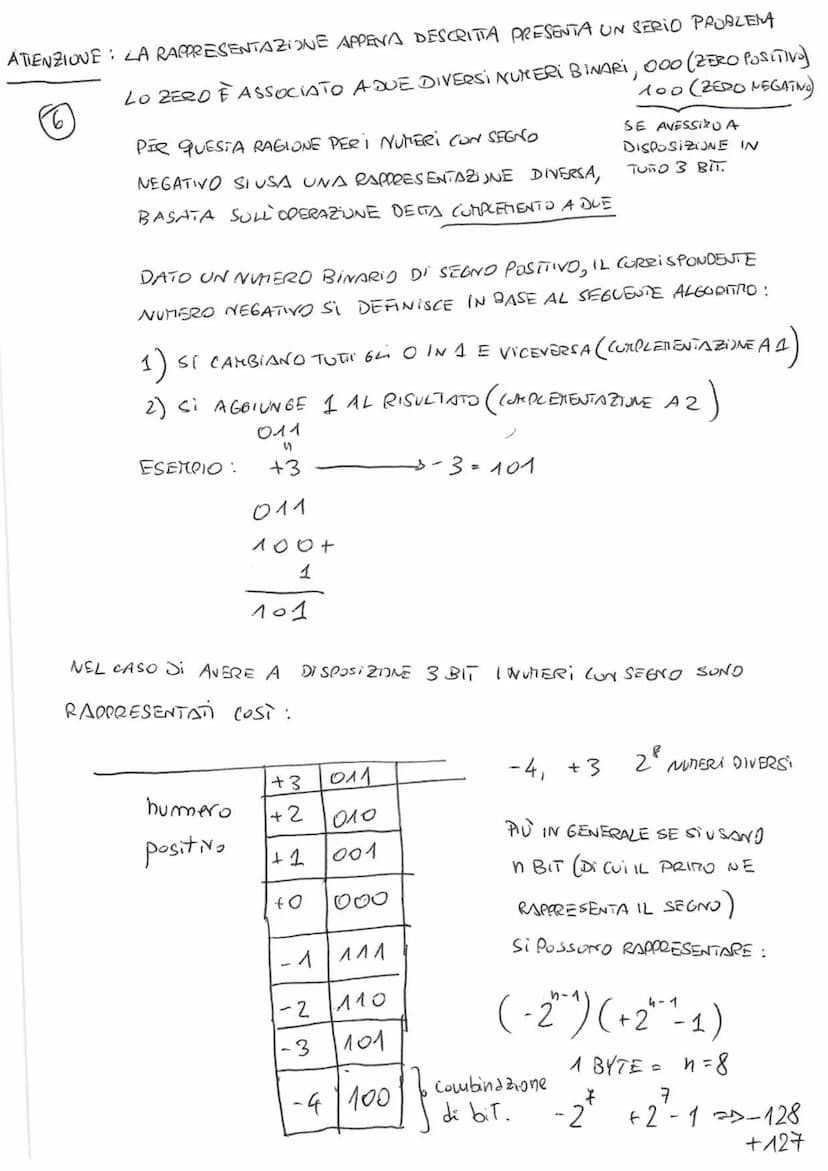 ATTENZIONE : LA RAPPRESENTAZIONE APPENA DESCRITTA PRESENTA UN SERIO PROBLEM
LO ZERO È ASSOCIATO A DUE DIVERSI NUMERI BINARI, 000 (ZERO POSITIVO)
100 (ZERO NEGATIVO)
6
SE AVESSIMO A
DISPOSIZIONE IN
TUTTO 3 BIT.
PER QUESTA RAGIONE PER I NUMERI CON SEGNO
NEGATIVO SI USA UNA RAPPRESENTAZIONE DIVERSA,
BASATA SULL'OPERAZIONE DETTA COMPLEMENTO A DUE
DATO UN NUMERO BINARIO DI SEGNO POSITIVO, IL CORRISPONDENTE
NUMERO NEGATIVO SI DEFINISCE IN BASE AL SEGUENTE ALGORITMO :
1) SI CAMBIANO TUTTI GLI 0 IN 1 E VICEVERSA (COMPLEMENTAZIONE A 1)
2) SI AGGIUNGE 1 AL RISULTATO (COMPLEMENTAZIONE A 2)
011
"
ESEMPIO : +3 → -3 = 101
011
100+
1
101
NEL CASO DI AVERE A DISPOSIZIONE 3 BIT I NUMERI CON SEGNO SONO
RAPPRESENTATI COSÌ :
numero
positivo
+3 011
+2 010
+1 001
+0 000
-1 111
-2 110
-3 101
-4 100
combinazione
di bit.
-4, +3 2^8 NUMERI DIVERSI
PIÙ IN GENERALE SE SI USANO
n BIT (DI CUI IL PRIMO NE
RAPPRESENTA IL SEGNO)
SI POSSONO RAPPRESENTARE :
(-2^n-1) (+2^n-1 -1)
1 BYTE = n=8
-2^7 +2^7-1 => -128
+127